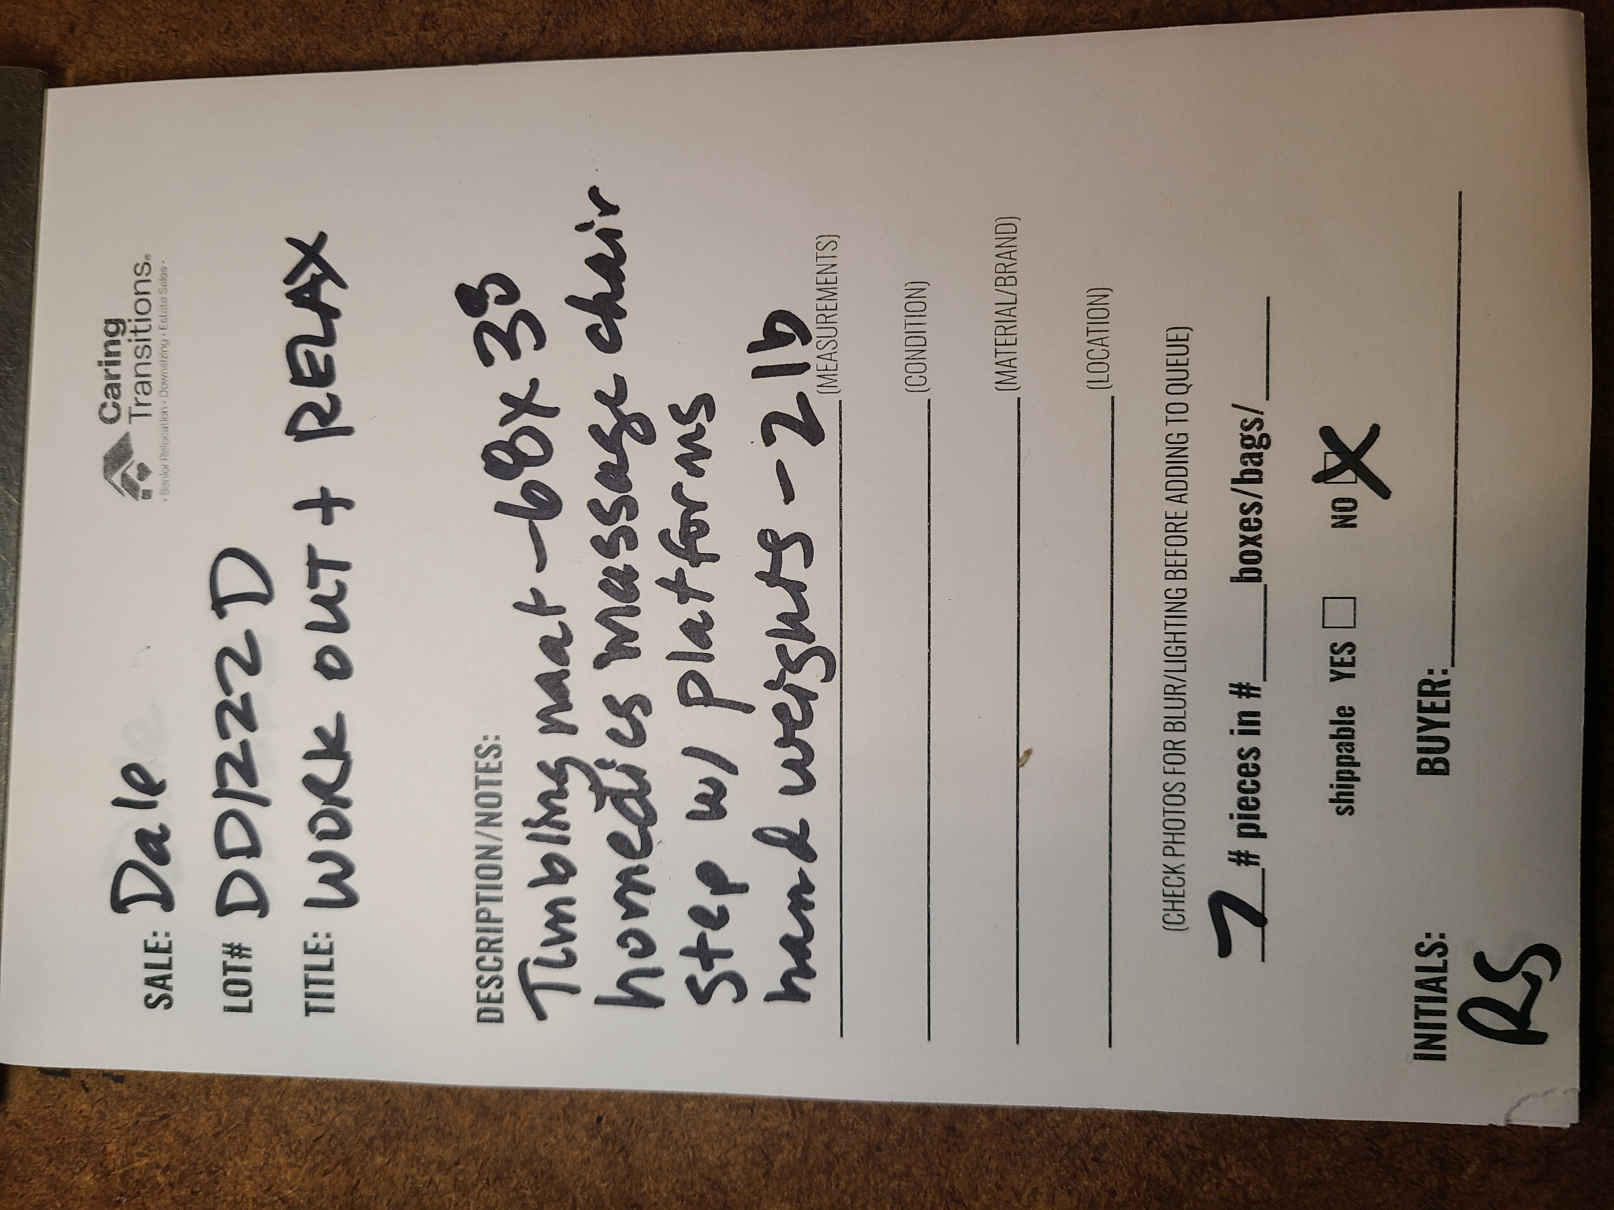 Caring
Transitions®
• Senior Relocation • Downsizing • Estate Sales •
SALE: Dale
LOT# DD1222D
TITLE: WORK OUT + RELAX
DESCRIPTION/NOTES:
Tumbling mat - 68x38
homedics massage chair
step w/ platforms
hand weights - 2lb
(MEASUREMENTS)
(CONDITION)
(MATERIAL/BRAND)
(LOCATION)
(CHECK PHOTOS FOR BLUR/LIGHTING BEFORE ADDING TO QUEUE)
7 # pieces in # boxes/bags/
shippable YES NO X
INITIALS: BUYER:
RS